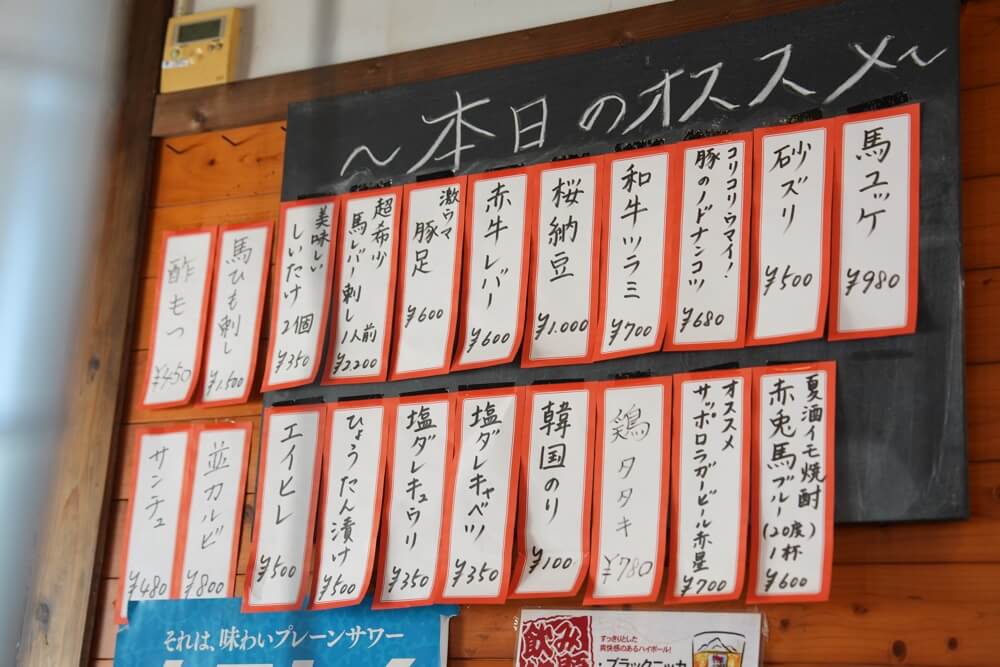 ～本日のオススメ～
馬ユッケ
¥980
砂ズリ
¥500
コリコリウマイ!
豚のノドナンコツ
¥680
和牛ツラミ
¥700
桜納豆
¥1.000
赤牛レバー
¥600
激ウマ
豚足
¥600
超希少
馬レバー刺し
1人前
¥2,200
美味しい
しいたけ
2個
¥350
馬ひも刺し
¥1.500
酢もつ
¥450
夏酒イモ焼酎
赤兎馬ブルー
(20度)
1杯
¥600
オススメ
サッポロラガービール赤星
¥700
鶏タタキ
¥780
韓国のり
¥100
塩ダレキャベツ
¥350
塩ダレキュウリ
¥350
ひょうたん漬け
¥500
エイヒレ
¥500
並カルビ
¥800
サンチュ
¥480
それは、味わいプレーンサワー
飲み
すっきりとした
爽快感のあるハイボール!
・ブラックニッカ